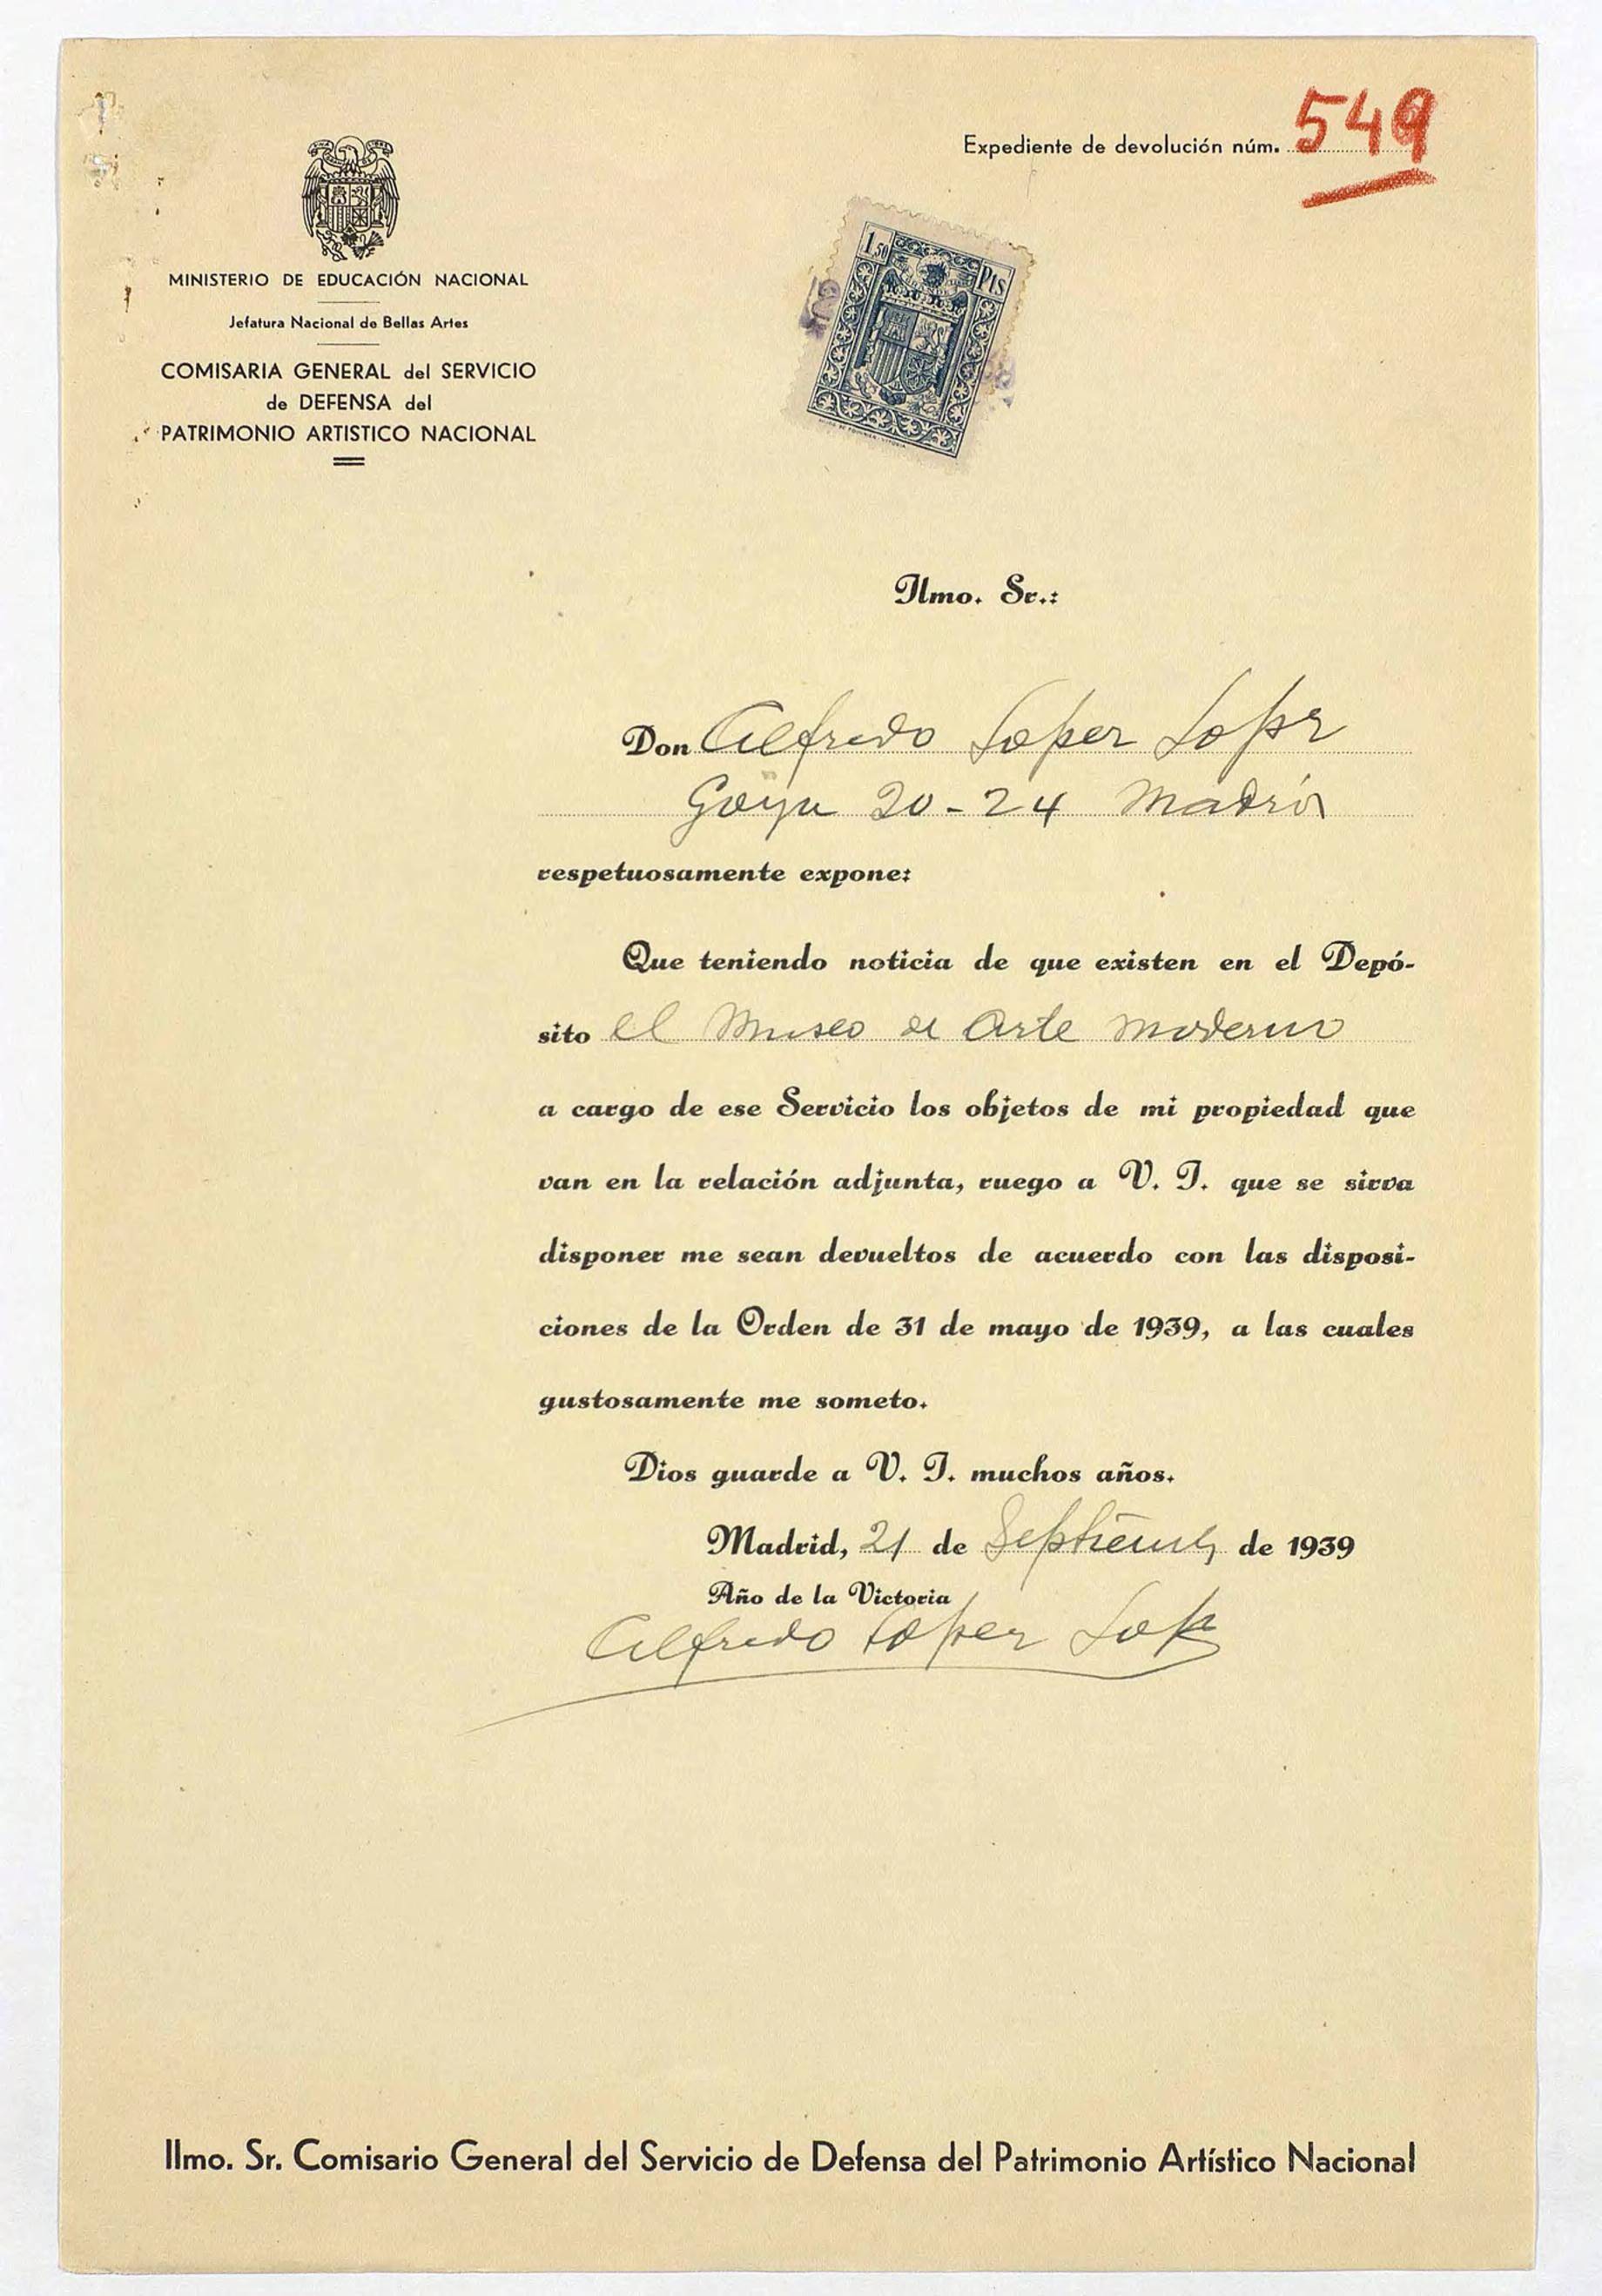 Expediente de devolución núm. 549
MINISTERIO DE EDUCACIÓN NACIONAL
Jefatura Nacional de Bellas Artes
COMISARIA GENERAL del SERVICIO
de DEFENSA del
PATRIMONIO ARTISTICO NACIONAL
1,50 Pts
Ilmo. Sr.:
Don Alfredo Loper Lopez
Goya 20-24 Madrid
respetuosamente expone:
Que teniendo noticia de que existen en el Depó-
sito el Museo de Arte Moderno
a cargo de ese Servicio los objetos de mi propiedad que
van en la relación adjunta, ruego a V. I. que se sirva
disponer me sean devueltos de acuerdo con las disposi-
ciones de la Orden de 31 de mayo de 1939, a las cuales
gustosamente me someto.
Dios guarde a V. I. muchos años.
Madrid, 21 de Septiembre de 1939
Año de la Victoria
Alfredo Loper Lopez
Ilmo. Sr. Comisario General del Servicio de Defensa del Patrimonio Artístico Nacional